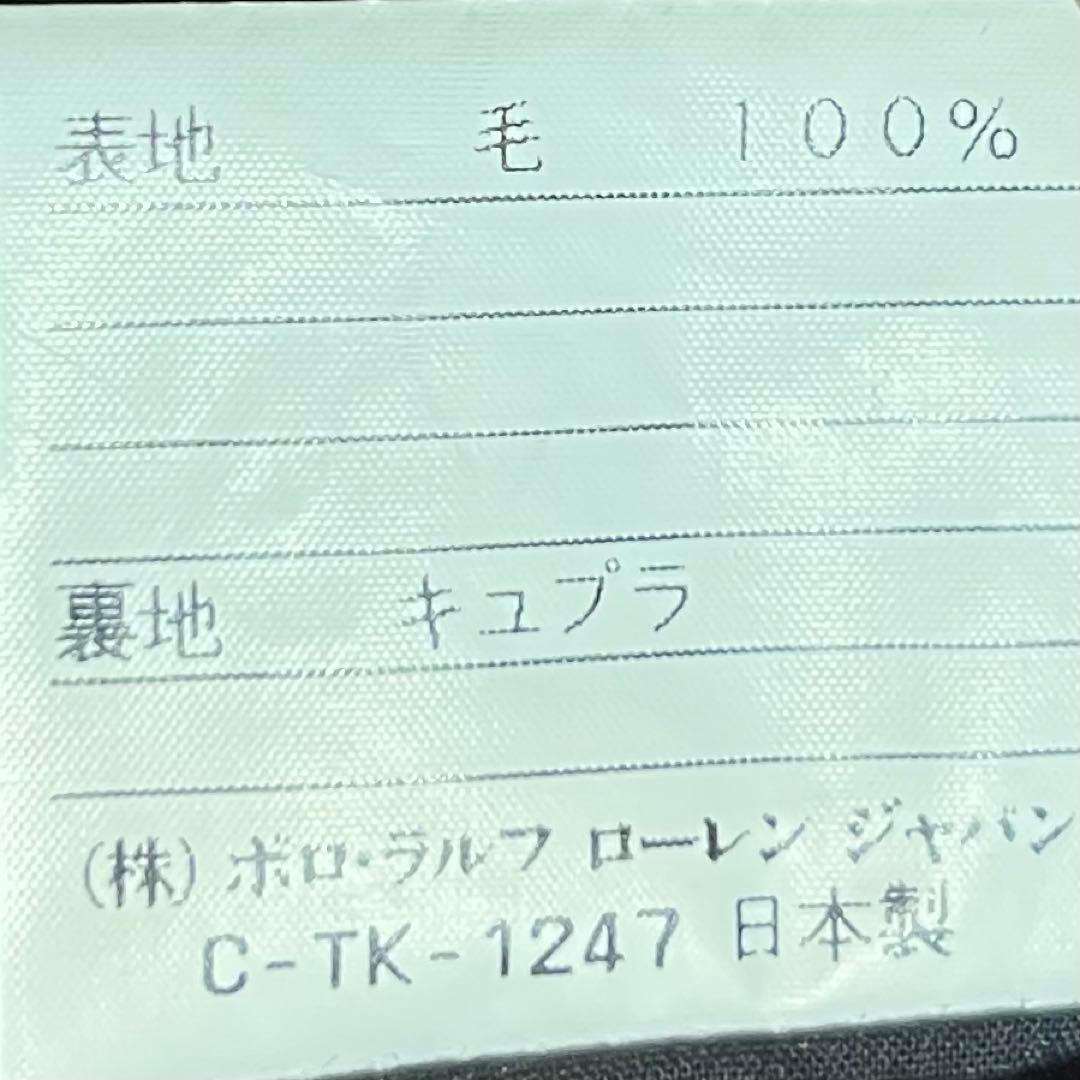 表地 毛 100%
裏地 キュプラ
(株) ポロ・ラルフ ローレン ジャパン
C-TK-1247 日本製